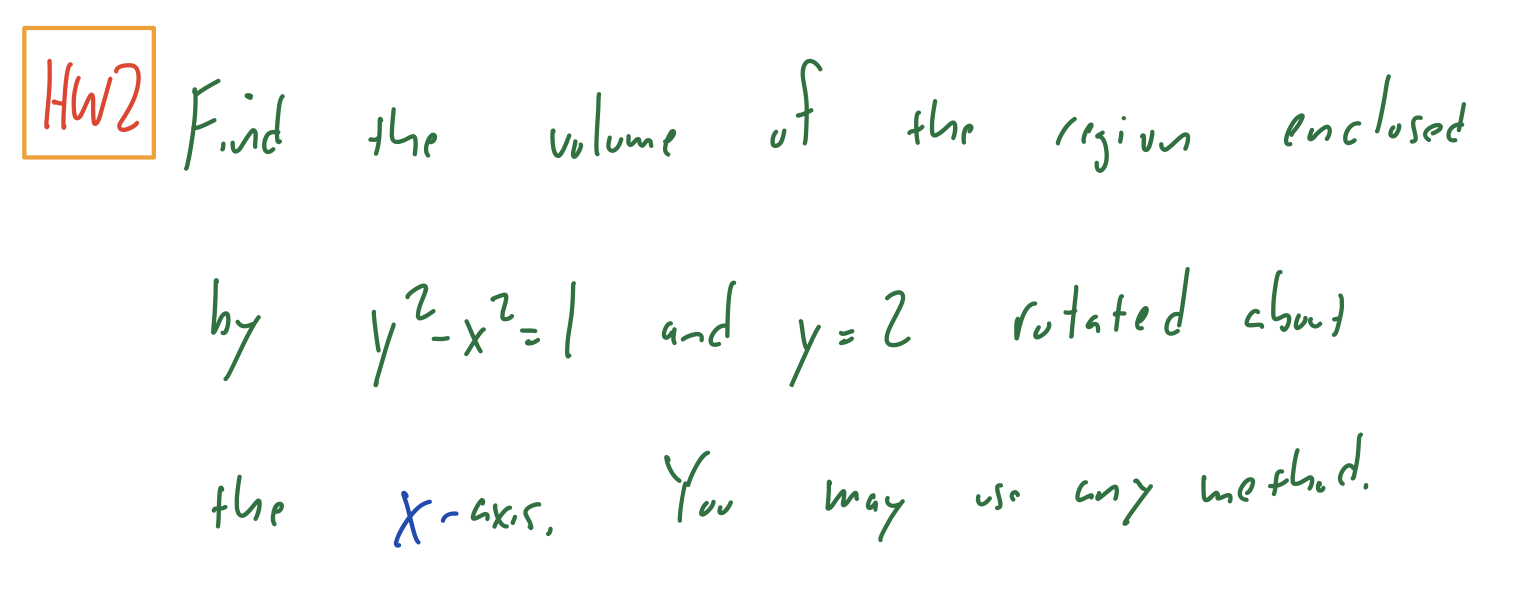 HW2 Find the volume of the region enclosed
by y²-x²=1 and y=2 rotated about
the x-axis. You may use any method.